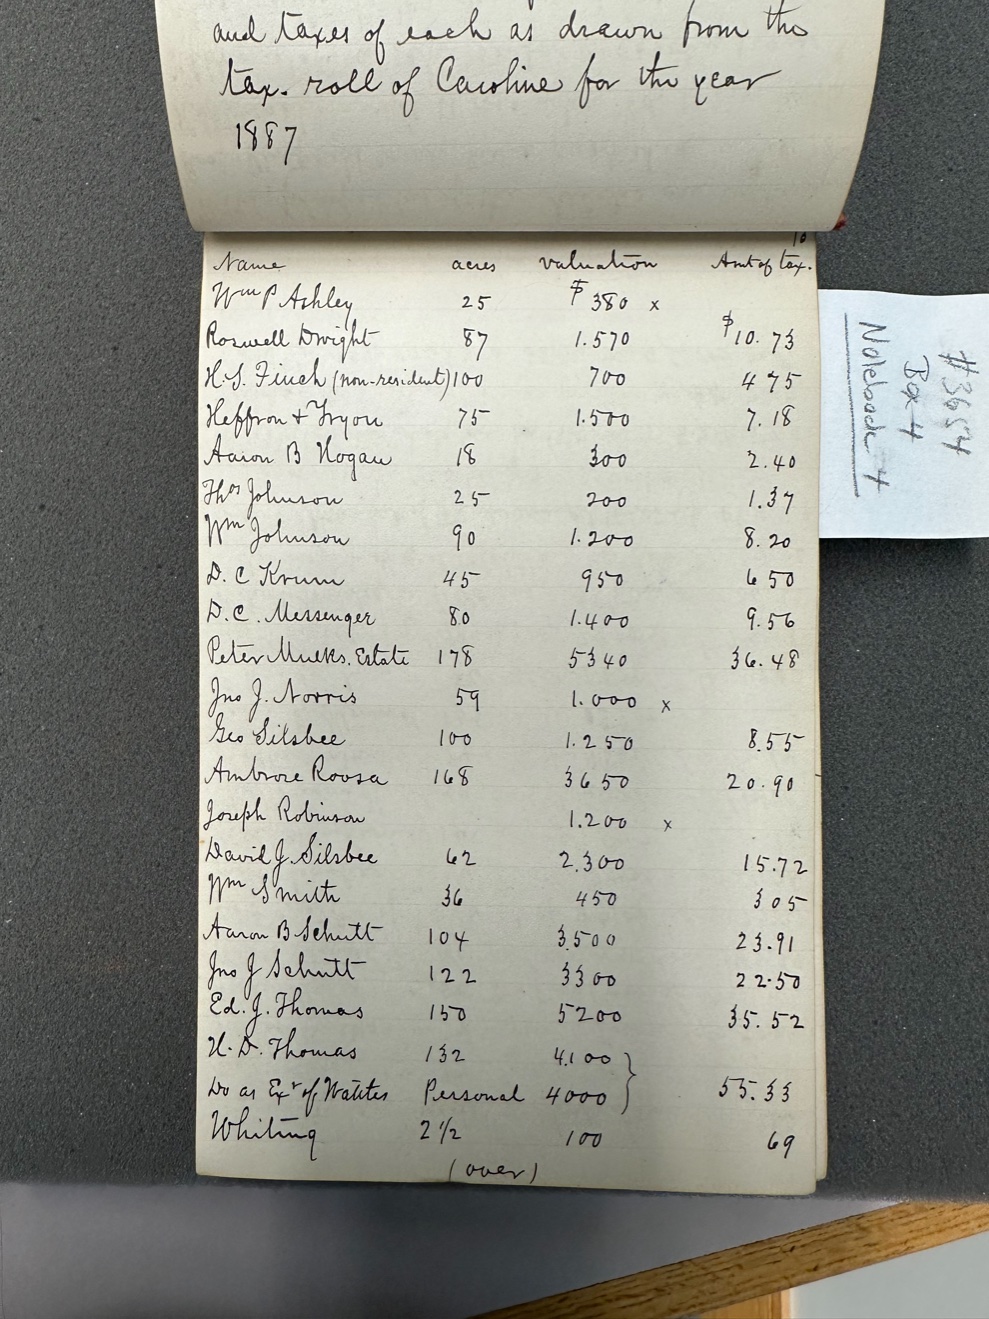 and taxes of each as drawn from the
tax. roll of Caroline for the year
1887
10
Name acres valuation Amt of tax.
Wm P Ashley 25 $380 x
Roswell Dwight 87 1.570 $10.73
H. S. Finch (non-resident) 100 700 4 75
Heffron + Tryon 75 1.500 7.18
Aaron B Hogan 18 300 2.40
Thos Johnson 25 200 1.37
Wm Johnson 90 1.200 8.20
D. C Krum 45 950 6 50
D. C. Messenger 80 1.400 9.56
Peter Mulks. Estate 178 5340 36.48
Jno J. Norris 59 1.000 x
Geo Silsbee 100 1.250 8.55
Ambrose Roosa 168 3650 20.90
Joseph Robinson 1.200 x
David J. Silsbee 62 2.300 15.72
Wm Smith 36 450 3 05
Aaron B Schutt 104 3.500 23.91
Jno J Schutt 122 3300 22.50
Ed. J. Thomas 150 5200 35.52
H. D. Thomas 132 4.100
Do as Exr of Personal 4000 55.33
Whiting 2 1/2 100 69
(over)
#3654
Box 4
Notebook 4